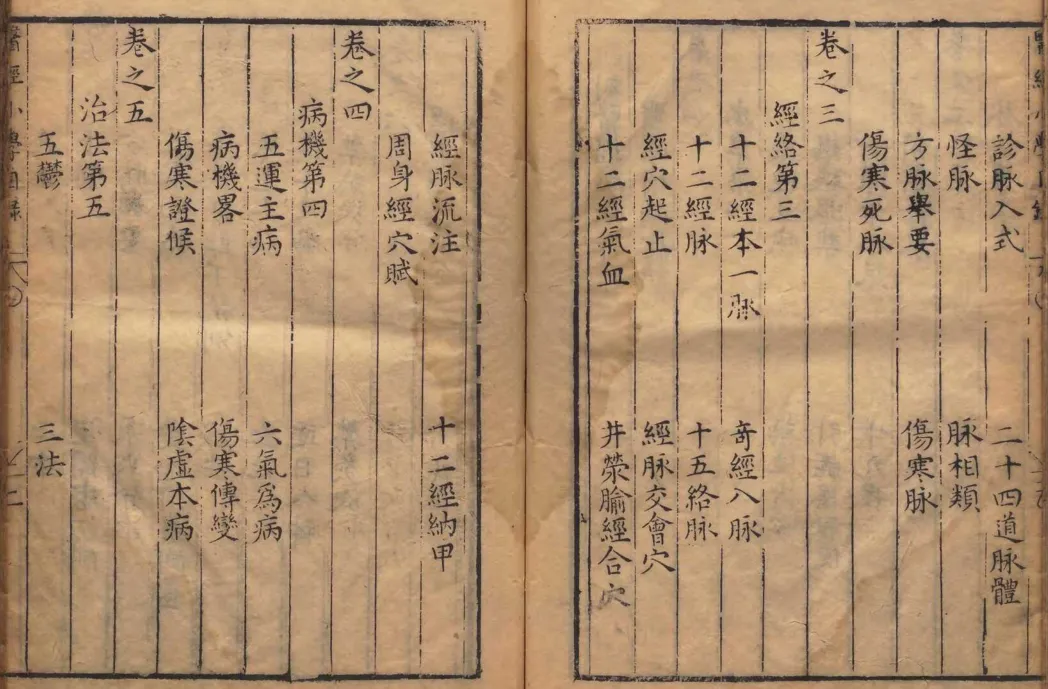 診脉入式 二十四道脉體
怪脉 脉相類
方脉舉要 傷寒脉
傷寒死脉
卷之三
經絡第三
十二經本一脉 竒經八脉
十二經脉 十五絡脉
經穴起止 經脉交會穴
十二經氣血 井滎腧經合穴
經脉流注 十二經納甲
周身經穴賦
卷之四
病機第四
五運主病 六氣爲病
病機畧 傷寒傳變
傷寒證候 陰虛本病
卷之五
治法第五
五鬱 三法
醫經小學目錄 二